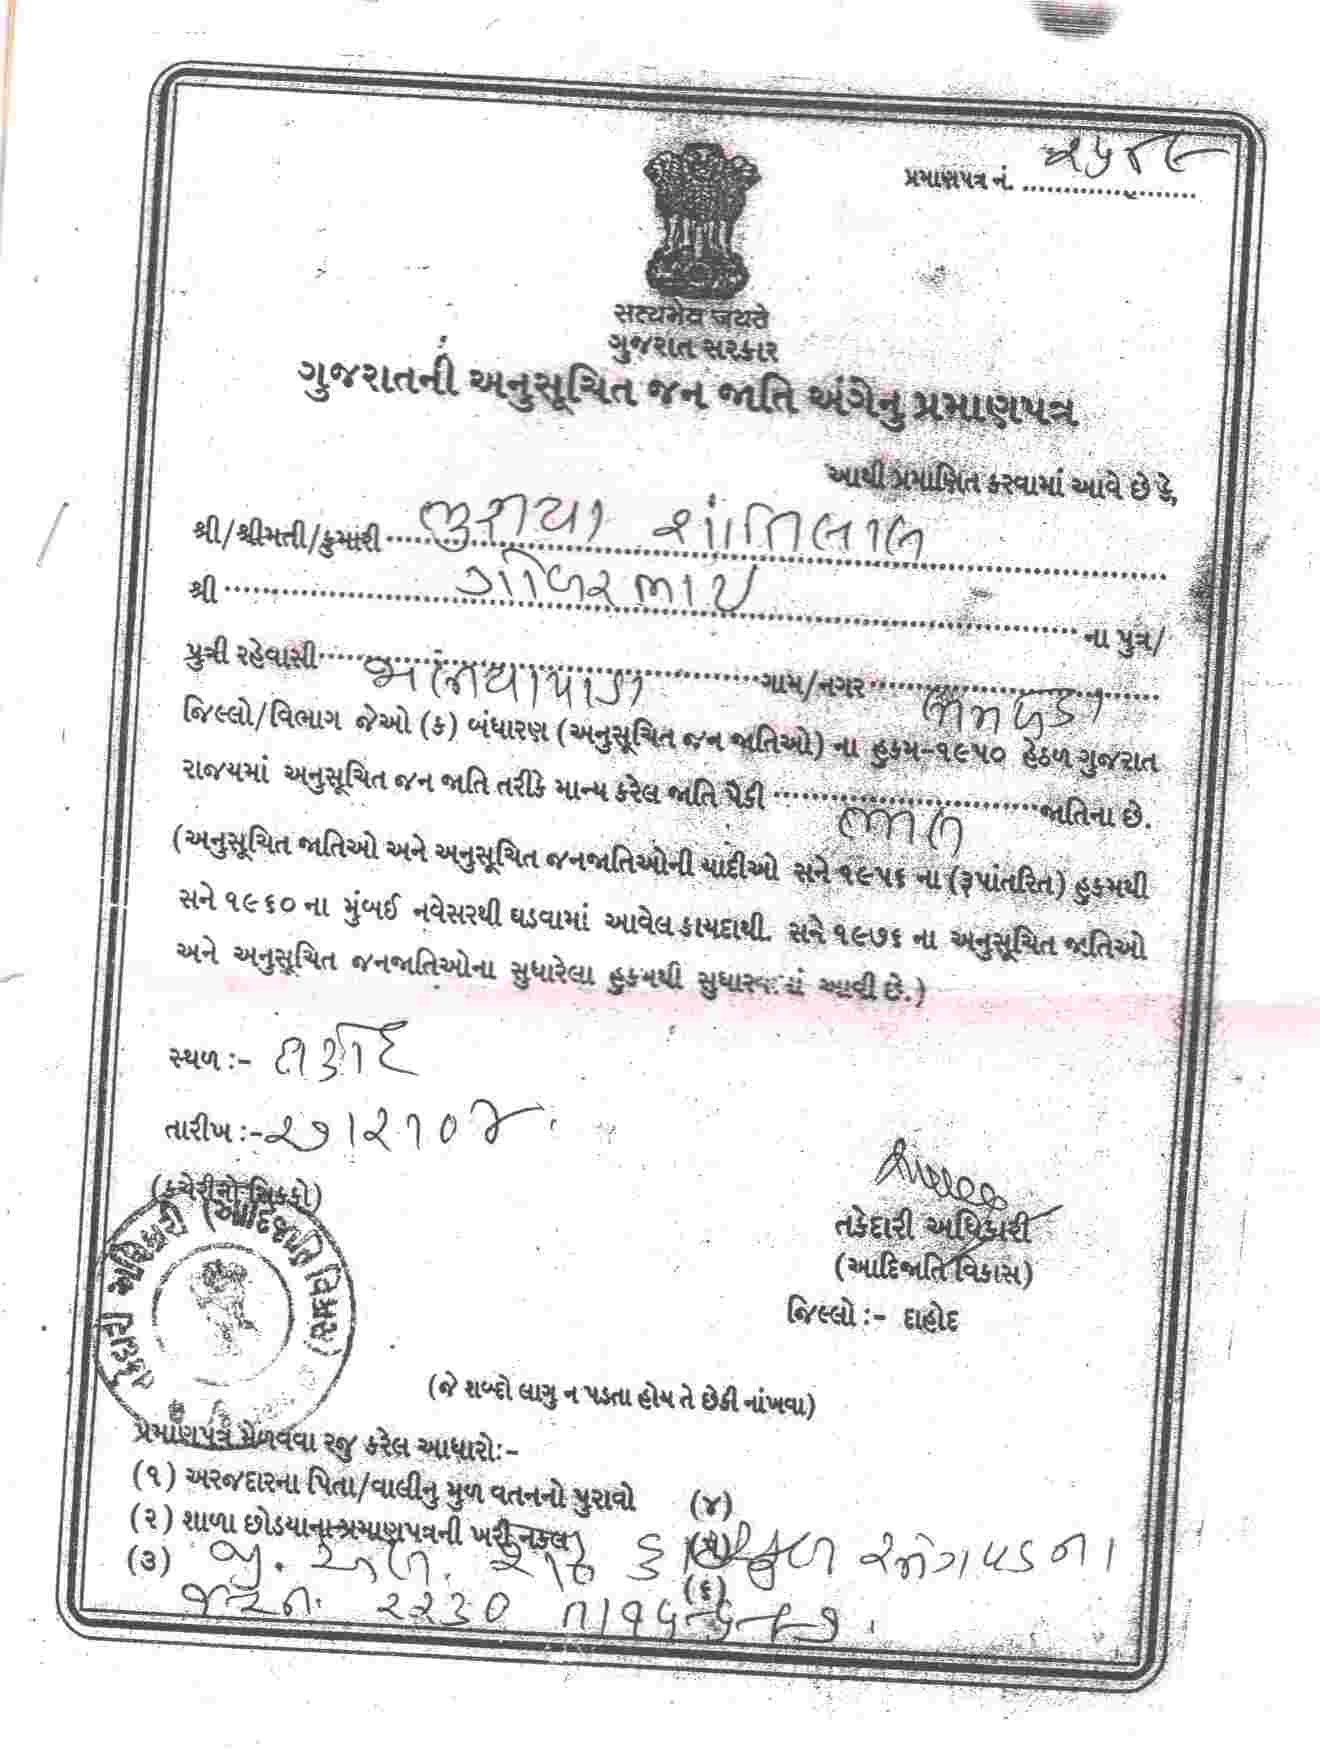 પ્રમાણપત્ર નં. ૨૫૪૯
સત્યમેવ જયતે
ગુજરાત સરકાર
ગુજરાતની અનુસૂચિત જન જાતિ અંગેનુ પ્રમાણપત્ર
આથી પ્રમાણિત કરવામાં આવે છે કે,
શ્રી/શ્રીમતી/કુમારી ભુરીયા શાંતિલાલ
શ્રી ના પુત્ર/
પુત્રી રહેવાસી ગામ/નગર
જિલ્લો/વિભાગ જેઓ (ક) બંધારણ (અનુસૂચિત જન જાતિઓ) ના હુકમ-૧૯૫૦ હેઠળ ગુજરાત
રાજયમાં અનુસૂચિત જન જાતિ તરીકે માન્ય કરેલ જાતિ પૈકી ભીલ જાતિના છે.
(અનુસૂચિત જાતિઓ અને અનુસૂચિત જનજાતિઓની યાદીઓ સને ૧૯૫૬ ના (રૂપાંતરિત) હુકમથી
સને ૧૯૬૦ ના મુંબઈ નવેસરથી ઘડવામાં આવેલ કાયદાથી. સને ૧૯૭૬ ના અનુસૂચિત જાતિઓ
અને અનુસૂચિત જનજાતિઓના સુધારેલા હુકમથી સુધારવામાં આવી છે.)
સ્થળ :- દાહોદ
તારીખ :- ૨૭/૨/૦૪
(કચેરીનો સિકકો)
તકેદારી અધિકારી (આદિજાતિ વિકાસ)
તકેદારી અધિકારી
(આદિજાતિ વિકાસ)
જિલ્લો :- દાહોદ
(જે શબ્દો લાગુ ન પડતા હોય તે છેકી નાંખવા)
પ્રમાણપત્ર મેળવવા રજુ કરેલ આધારો:-
(૧) અરજદારના પિતા/વાલીનુ મુળ વતનનો પુરાવો (૪)
(૨) શાળા છોડયાના પ્રમાણપત્રની ખરી નકલ (૫)
(૩) (૬)
૨૨૩૦ તા ૧૫-૬-૯૭.